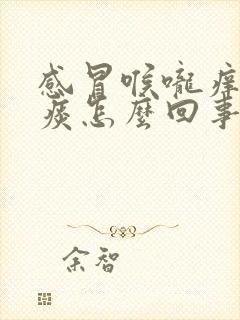 感冒喉嚨痒
痰怎麼回事
余智